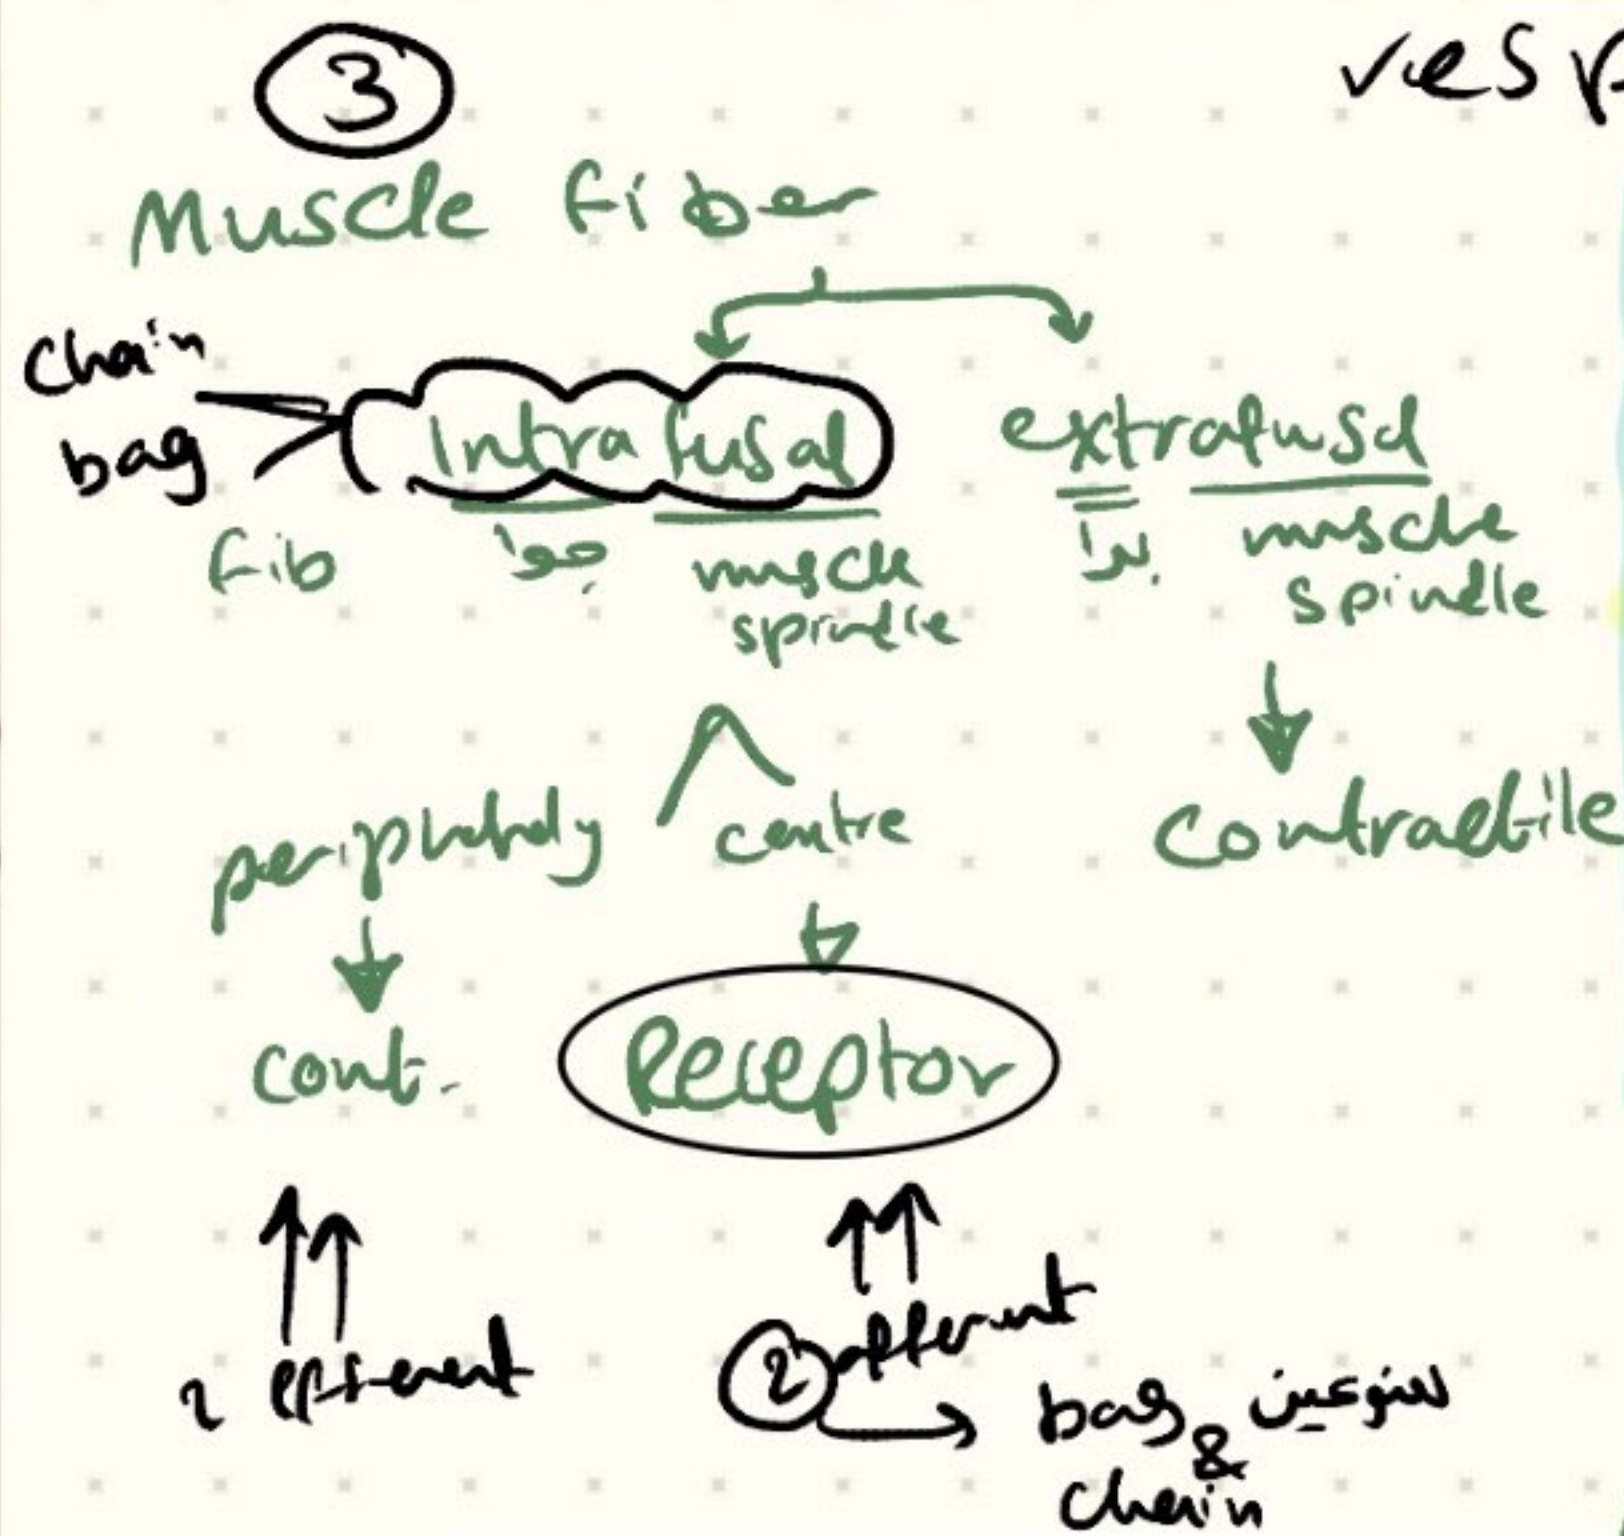 3
resp
Muscle fiber
chain
bag
Intrafusal
extrafusal
fib
جوا
muscle
spindle
برا
muscle
spindle
centre
contractile
cont.
Receptor
2 efferent
2 afferent
bag & chain
لنوعين